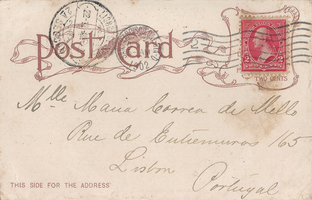 Post Card
1902
TWO CENTS
Mlle Maria Correa de Mello
Rue de Entremuros 165
Lisbon
Portugal
THIS SIDE FOR THE ADDRESS